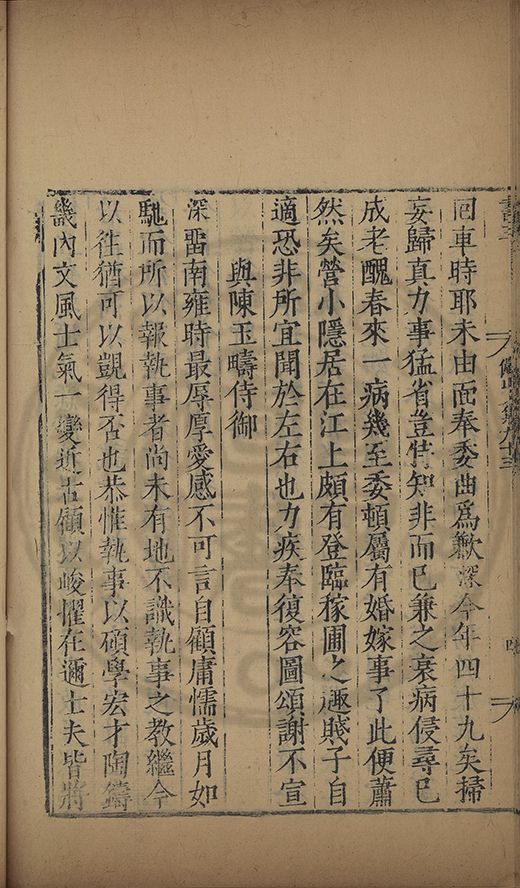 回車時耶未由面奉委曲爲歉深今年四十九矣掃
妄歸真力事猛省豈特知非而已兼之衰病侵尋已
成老醜春來一病幾至委頓屬有婚嫁事了此便蕭
然矣營小隱居在江上頗有登臨稼圃之趣賤子自
適恐非所宜聞於左右也力疾奉復容圖頌謝不宣
與陳玉疇侍御
深畱南雍時最辱厚愛感不可言自顧庸懦歲月如
馳而所以報執事者尚未有地不識執事之教繼今
以往猶可以覬得否也恭惟執事以碩學宏才陶鑄
畿內文風士氣一變近古顧以峻擢在邇士夫皆將